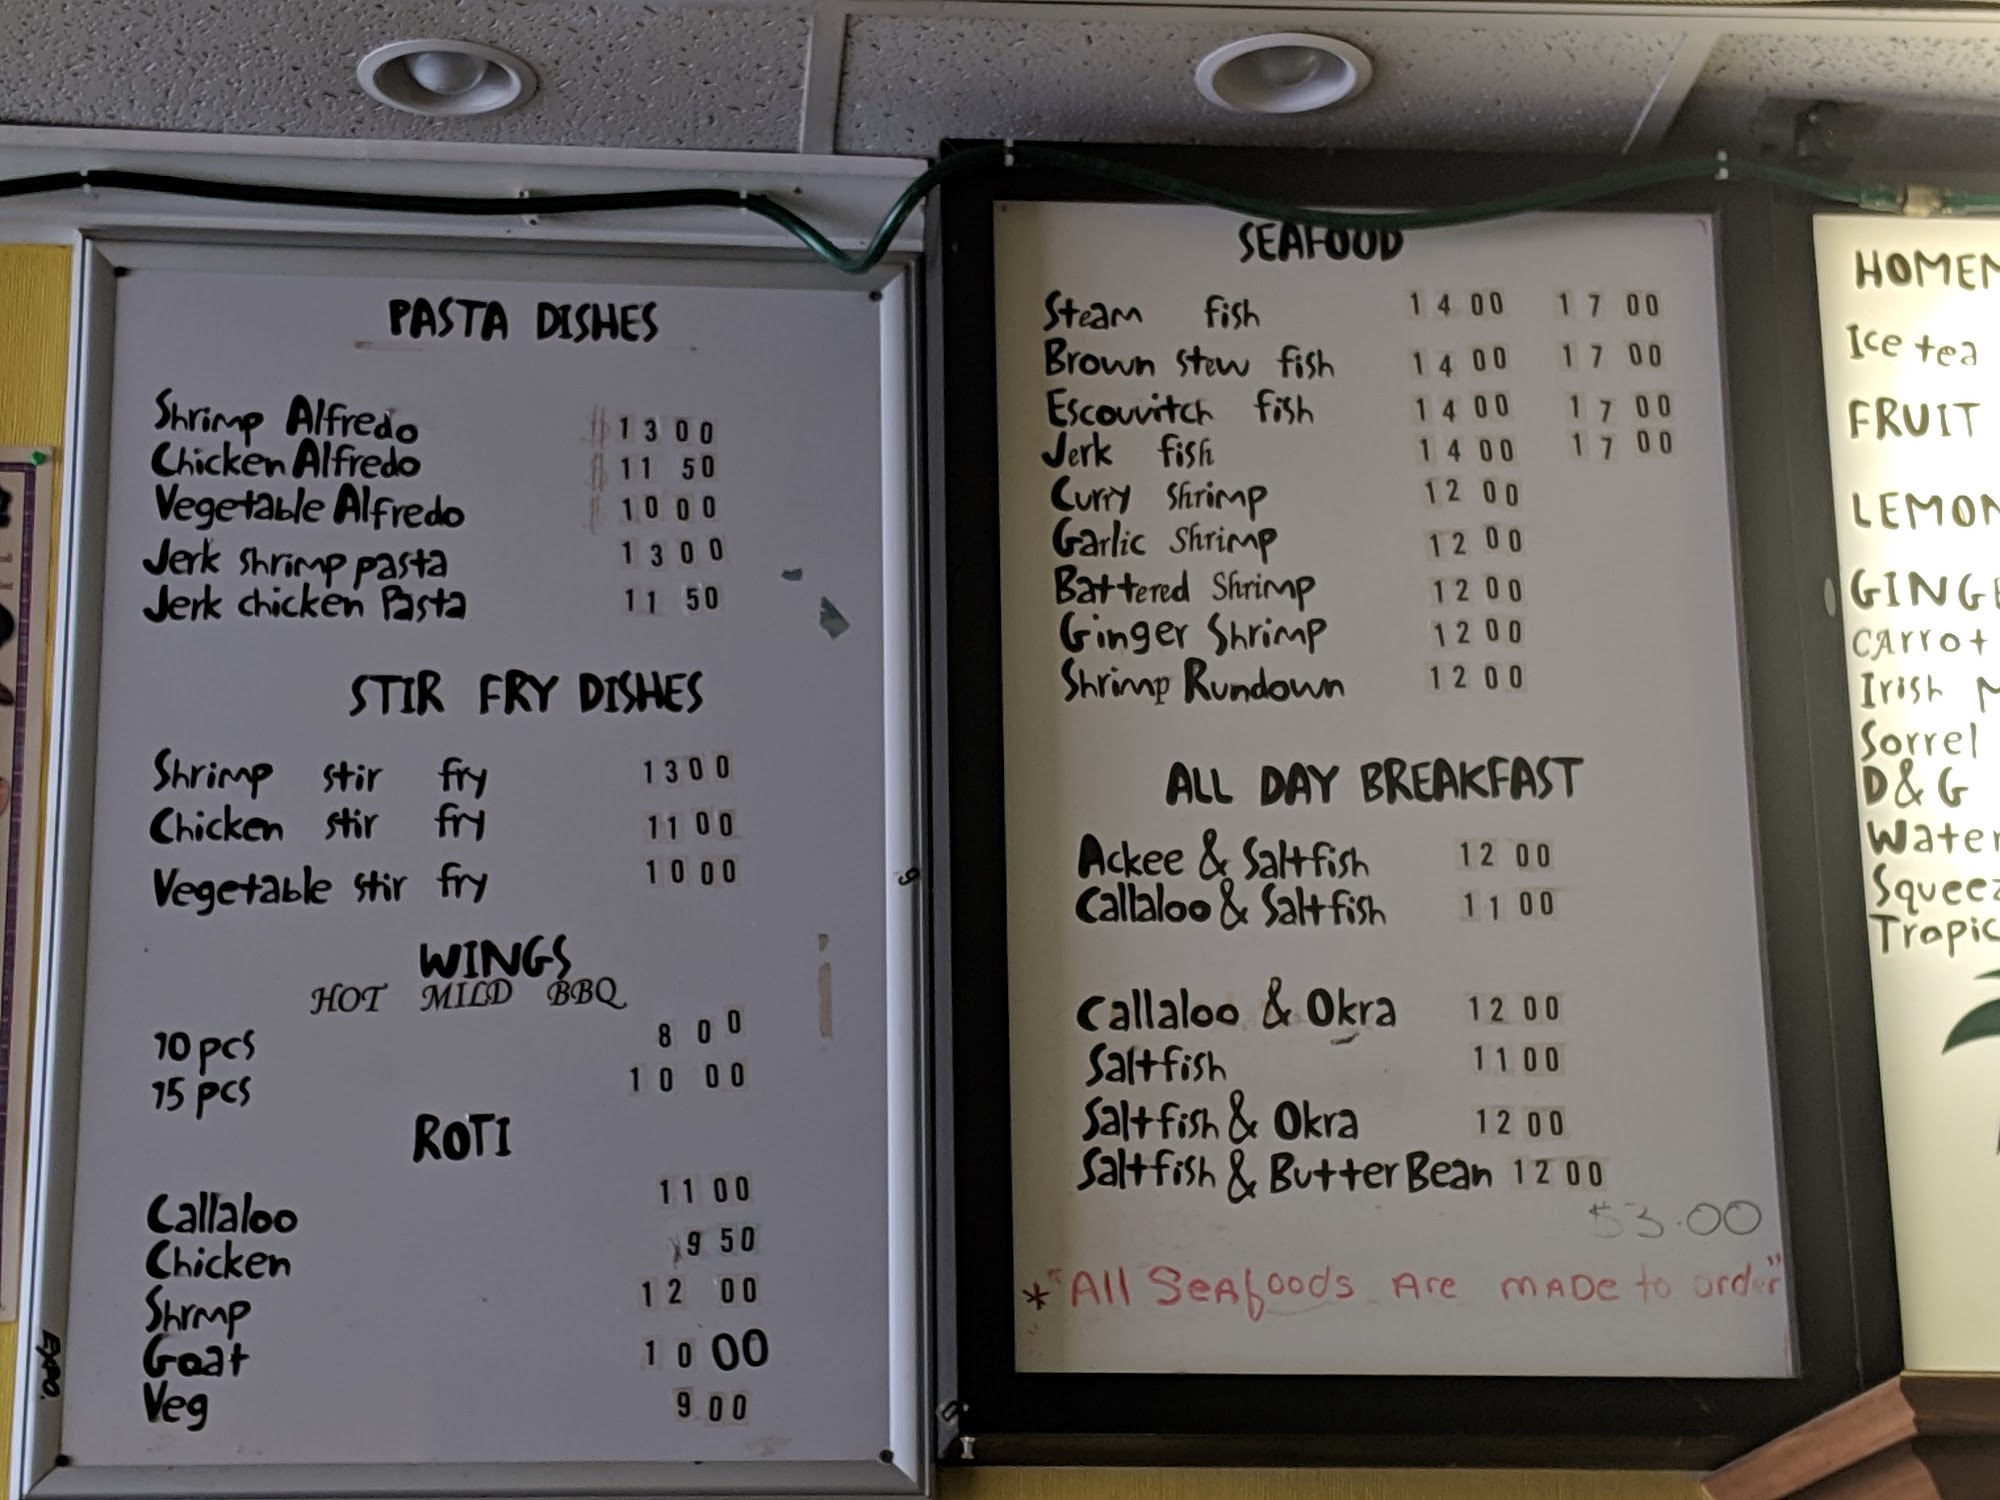 PASTA DISHES
Shrimp Alfredo $ 13 00
Chicken Alfredo $ 11 50
Vegetable Alfredo $ 10 00
Jerk shrimp pasta 13 00
Jerk chicken Pasta 11 50
STIR FRY DISHES
Shrimp stir fry 13 00
Chicken stir fry 11 00
Vegetable stir fry 10 00
WINGS
HOT MILD BBQ
10 pcs 8 00
15 pcs 10 00
ROTI
Callaloo 11 00
Chicken 9 50
Shrmp 12 00
Goat 10 00
Veg 9 00
EXPO.
SEAFOOD
Steam fish 14 00 17 00
Brown stew fish 14 00 17 00
Escouvitch fish 14 00 17 00
Jerk fish 14 00 17 00
Curry Shrimp 12 00
Garlic Shrimp 12 00
Battered Shrimp 12 00
Ginger Shrimp 12 00
Shrimp Rundown 12 00
ALL DAY BREAKFAST
Ackee & Saltfish 12 00
Callaloo & Saltfish 11 00
Callaloo & Okra 12 00
Saltfish 11 00
Saltfish & Okra 12 00
Saltfish & Butter Bean 12 00
$3.00
* "All SeAfoods Are MADe to order"
HOMEM
Ice tea
FRUIT
LEMON
GINGE
CArrot
Irish M
Sorrel
D&G
Water
Squeez
Tropic